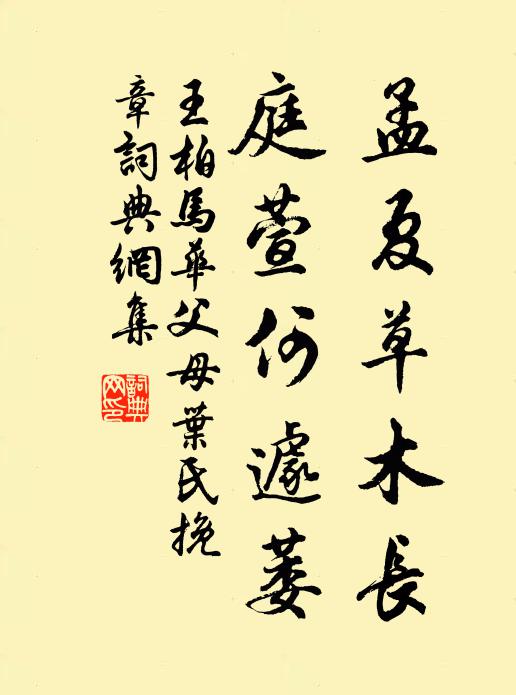 孟夏草木長
庭萱何遽萎
王柏馬華父母葉氏挽
章詞典網集
詞典
网印